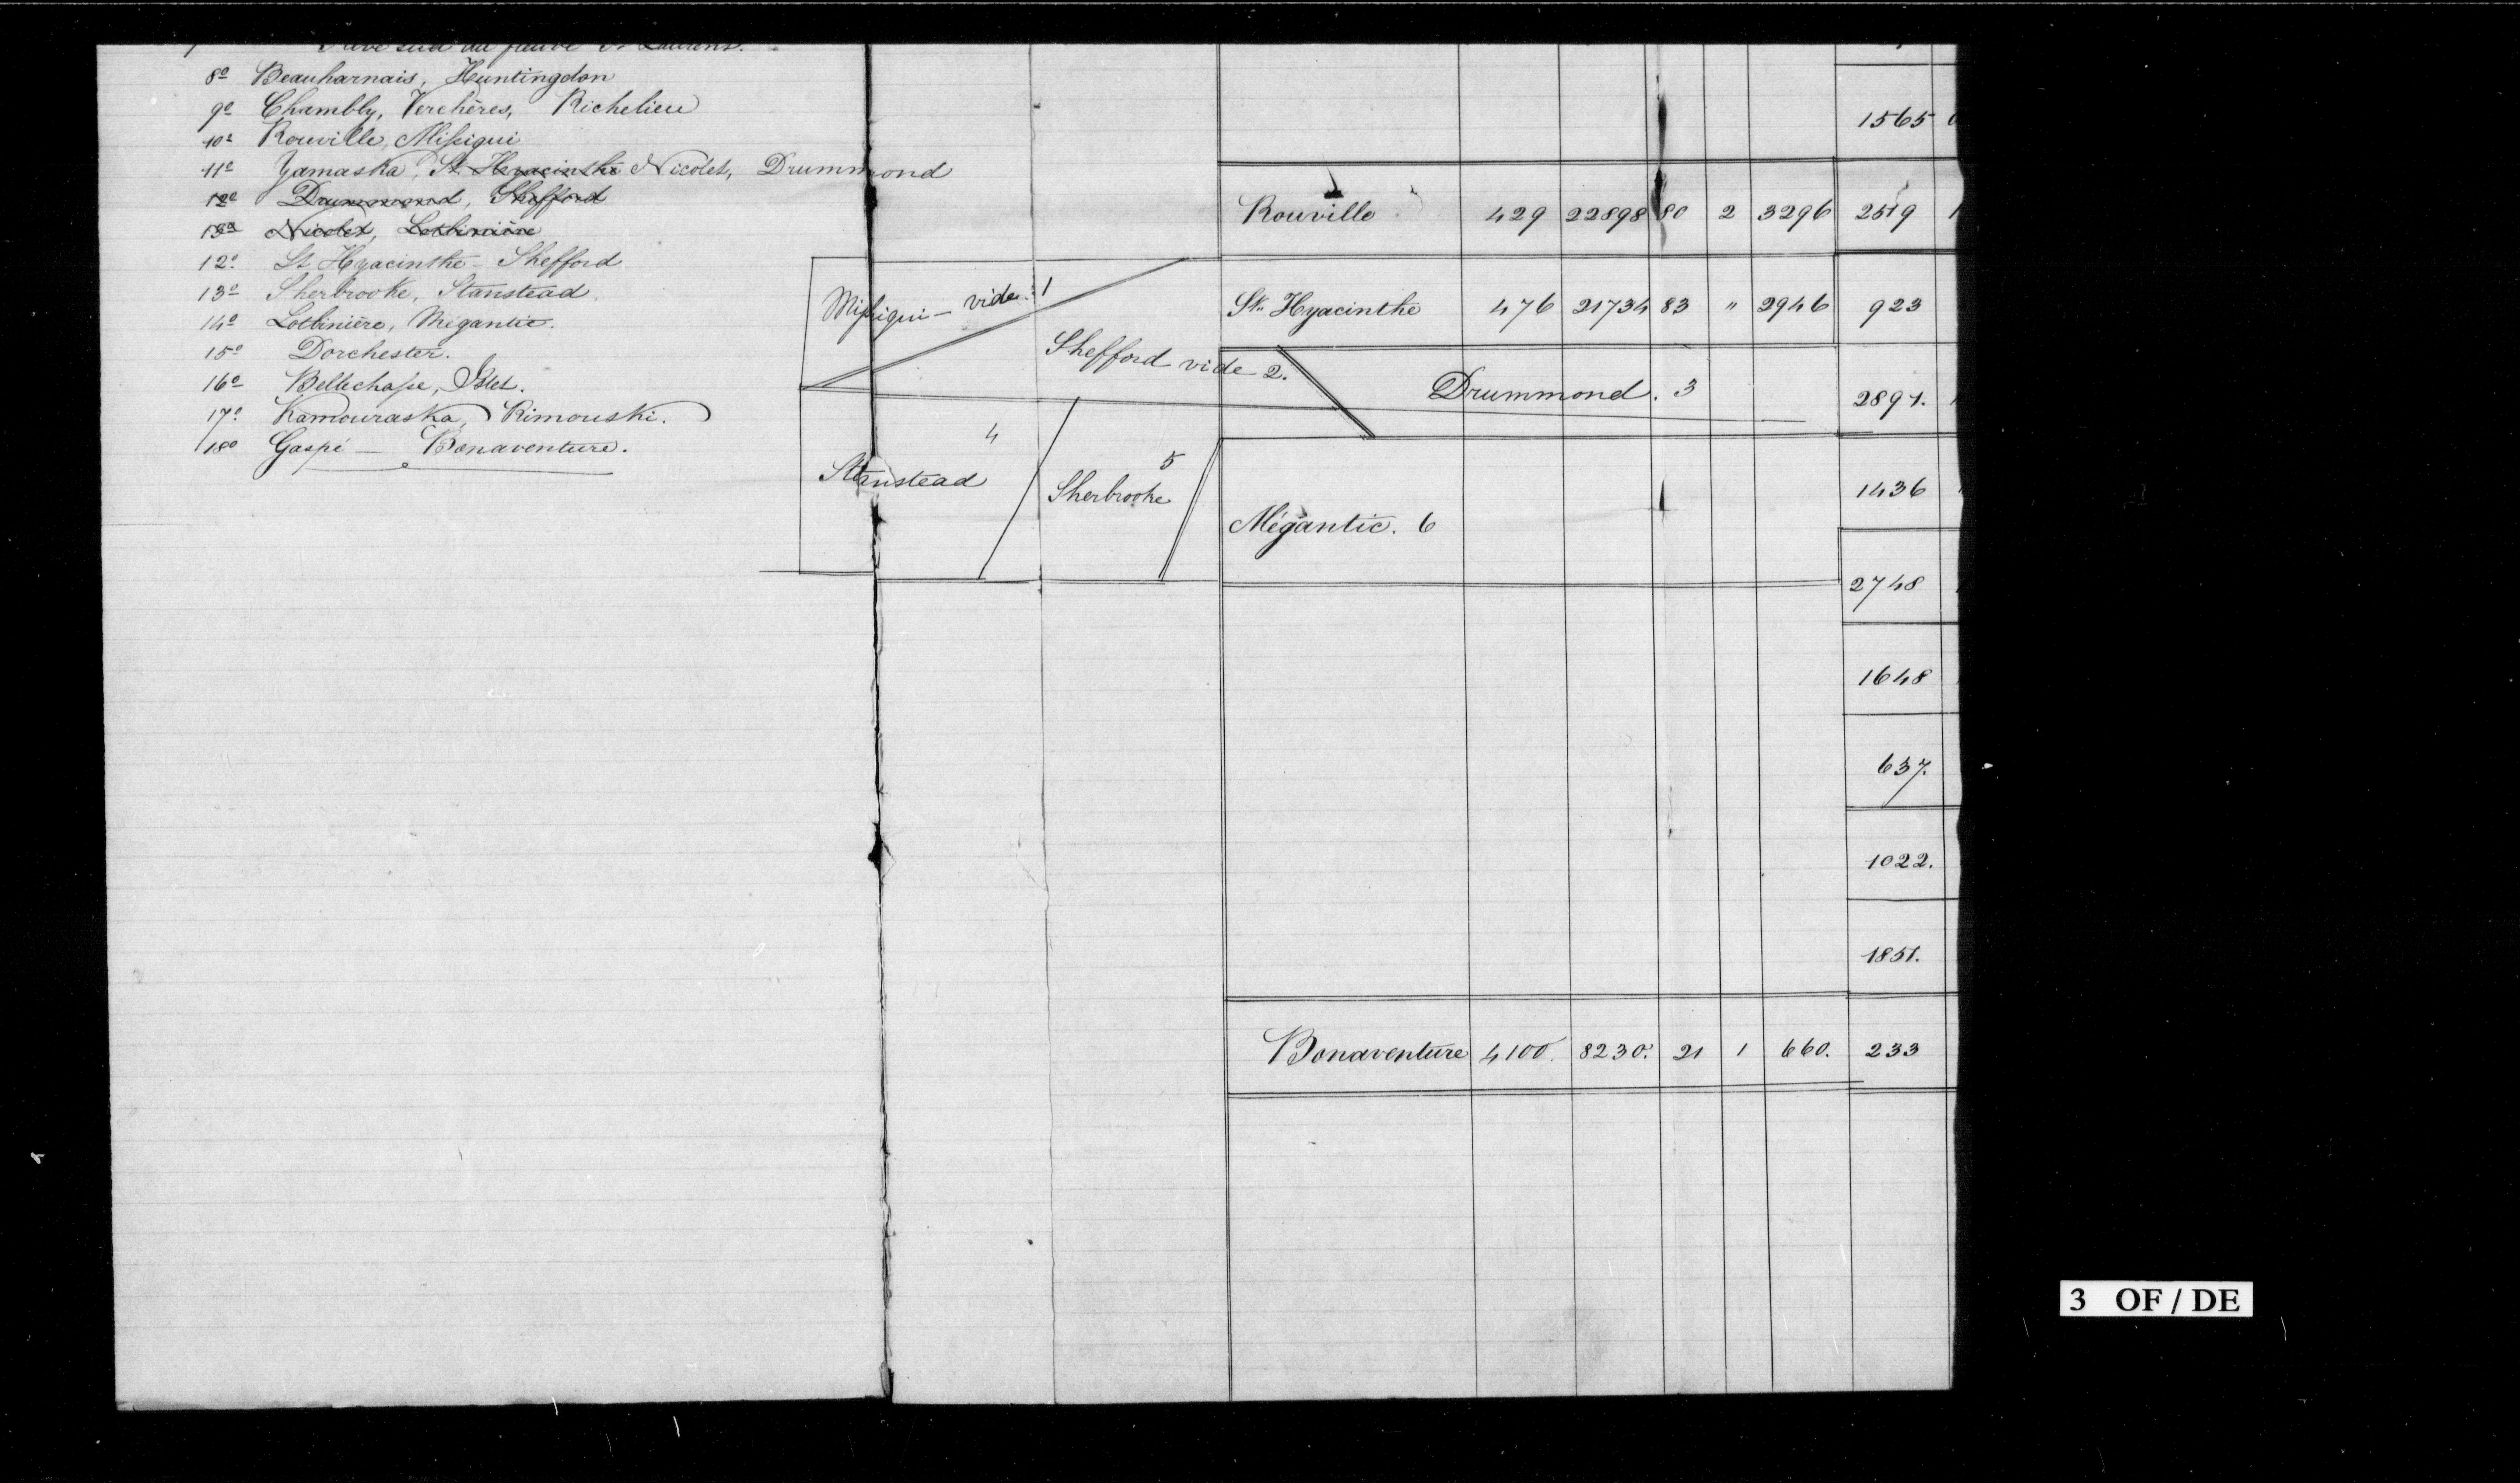 Rive sud du fleuve St Laurent.
8º Beauharnais, Huntingdon
9º Chambly, Verchères, Richelieu
10º Rouville, Missiqui
11º Yamaska, St Hyacinthe Nicolet, Drummond
12º Drummond, Shefford
13º Nicolet, Lotbinière
12º St Hyacinthe - Shefford
13º Sherbrooke, Stanstead
14º Lotbinière, Mégantic.
15º Dorchester.
16º Bellechasse, Islet.
17º Kamouraska, Rimouski.
18º Gaspé — Bonaventure.
1565
Rouville 429 22898 80 2 3296 2519
Missiqui — vide 1
St. Hyacinthe 476 21734 83 " 2946 923
Shefford vide 2.
Drummond. 3
2891.
Stanstead 4
Sherbrooke 5
Mégantic. 6
1436
2748
1648
637.
1022.
1851.
Bonaventure 4100. 8230. 21 1 660. 233
3 OF / DE